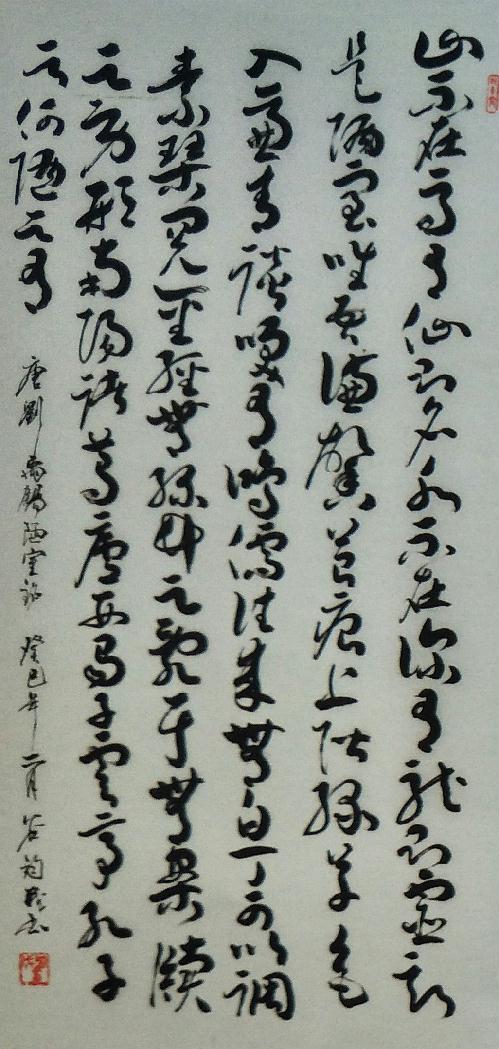 山不在高有仙则名水不在深有龙则灵斯
是陋室唯吾德馨苔痕上阶绿草色
入帘青谈笑有鸿儒往来无白丁可以调
素琴阅金经无丝竹之乱耳无案牍
之劳形南阳诸葛庐西蜀子云亭孔子
云何陋之有
唐刘禹锡陋室铭 癸巳年二月